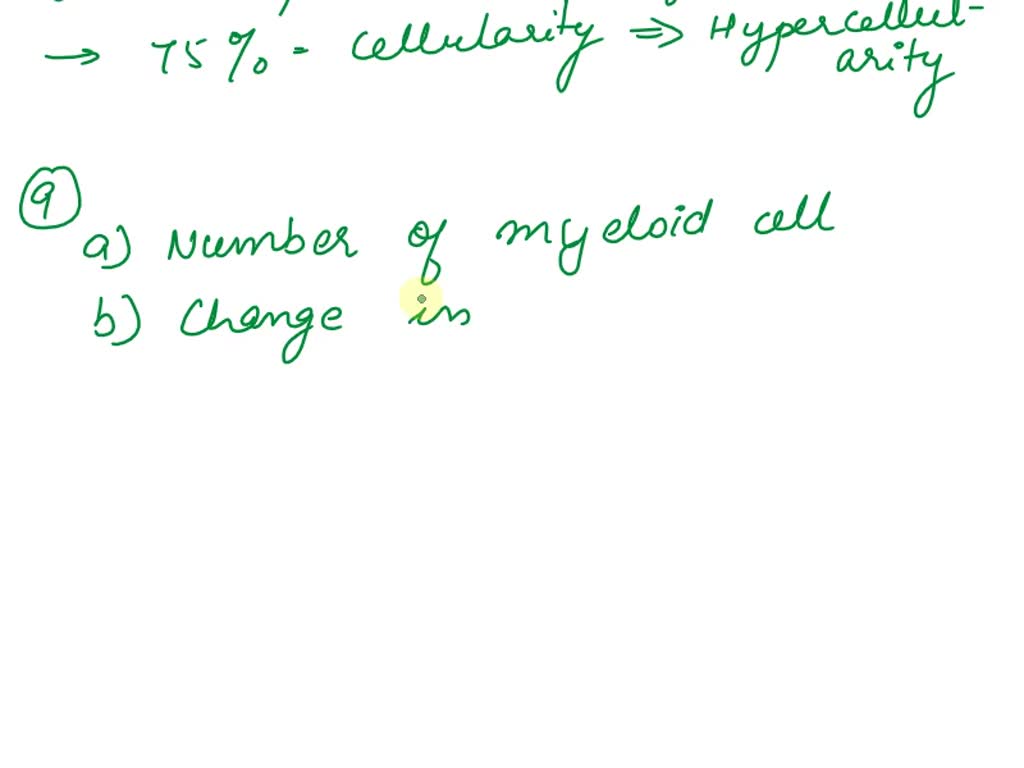 → 75% = cellularity ⇒ Hypercellul-
arity
9
a) Number of myeloid cell
b) Change in